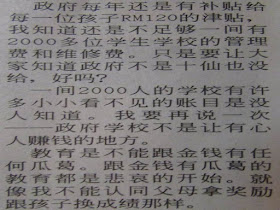 政府每年还是有补贴给
每一位孩子RM120的津贴，
我知道还是不足够一间有
2000多位学生学校的管理
费和维修费。只是要让大
家知道政府不是十仙也没
给，好吗？
一间2000人的学校有许
多小小看不见的账目是没
人知道。我要再说一次
——政府学校不是让有心
人赚钱的地方。
教育是不能跟金钱有任
何瓜葛。跟金钱有瓜葛的
教育都是悲哀的开始。就
像我不能认同父母拿奖励
跟孩子换成绩那样。